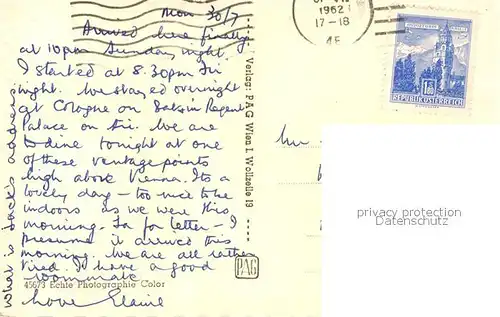 Mon 30/7
Arrived here finally
at 10pm Sunday night.
I started at 8.30pm Fri
night. We stayed overnight
at Cologne on Sat in Regent
Palace on Fri. We are
to dine tonight at one
of these vantage points
high above Vienna. Its a
lovely day - too nice to be
indoors as we were this
morning. Ta for letter - I
presume it arrived this
morning. We are all rather
tired. I have a good
roommate
Love Elaine
What is Jack's address
45673 Echte Photographie Color
Verlag: PAG Wien I. Wollzeile 19
PAG
1962
17-18
REPUBLIK ÖSTERREICH
Mr
privacy protection
Datenschutz